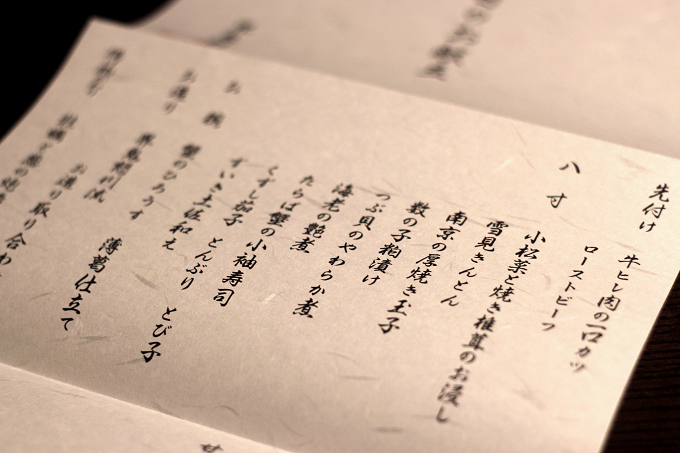 先付け
牛ヒレ肉の一口カツ
ローストビーフ
八寸
小松菜と焼き椎茸のお浸し
雪見きんとん
南京の厚焼き玉子
数の子粕漬け
つぶ貝のやわらか煮
海老の艶煮
たらば蟹の小袖寿司
くずし茄子 とんぶり とび子
すいき土佐和え
お椀
蟹のひろうす 薄葛仕立て
お造り
お造り取り合わ